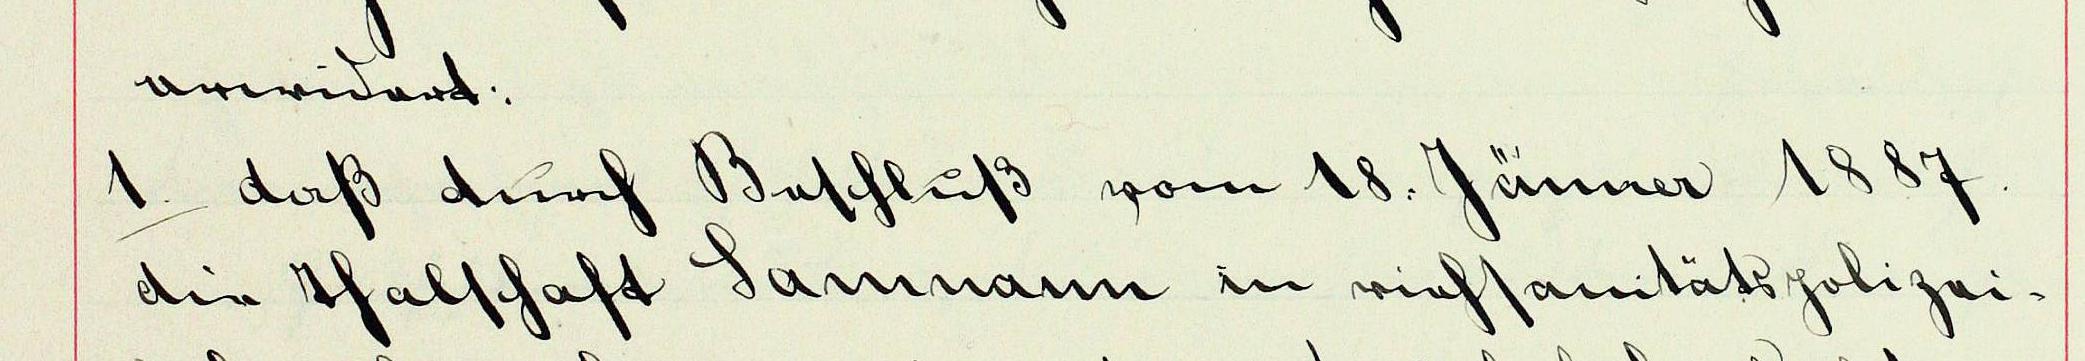 erwidert:
1. daß durch Beschluß vom 18. Jänner 1887.
die Thalschaft Samnaun in viehsanitätspolizei-